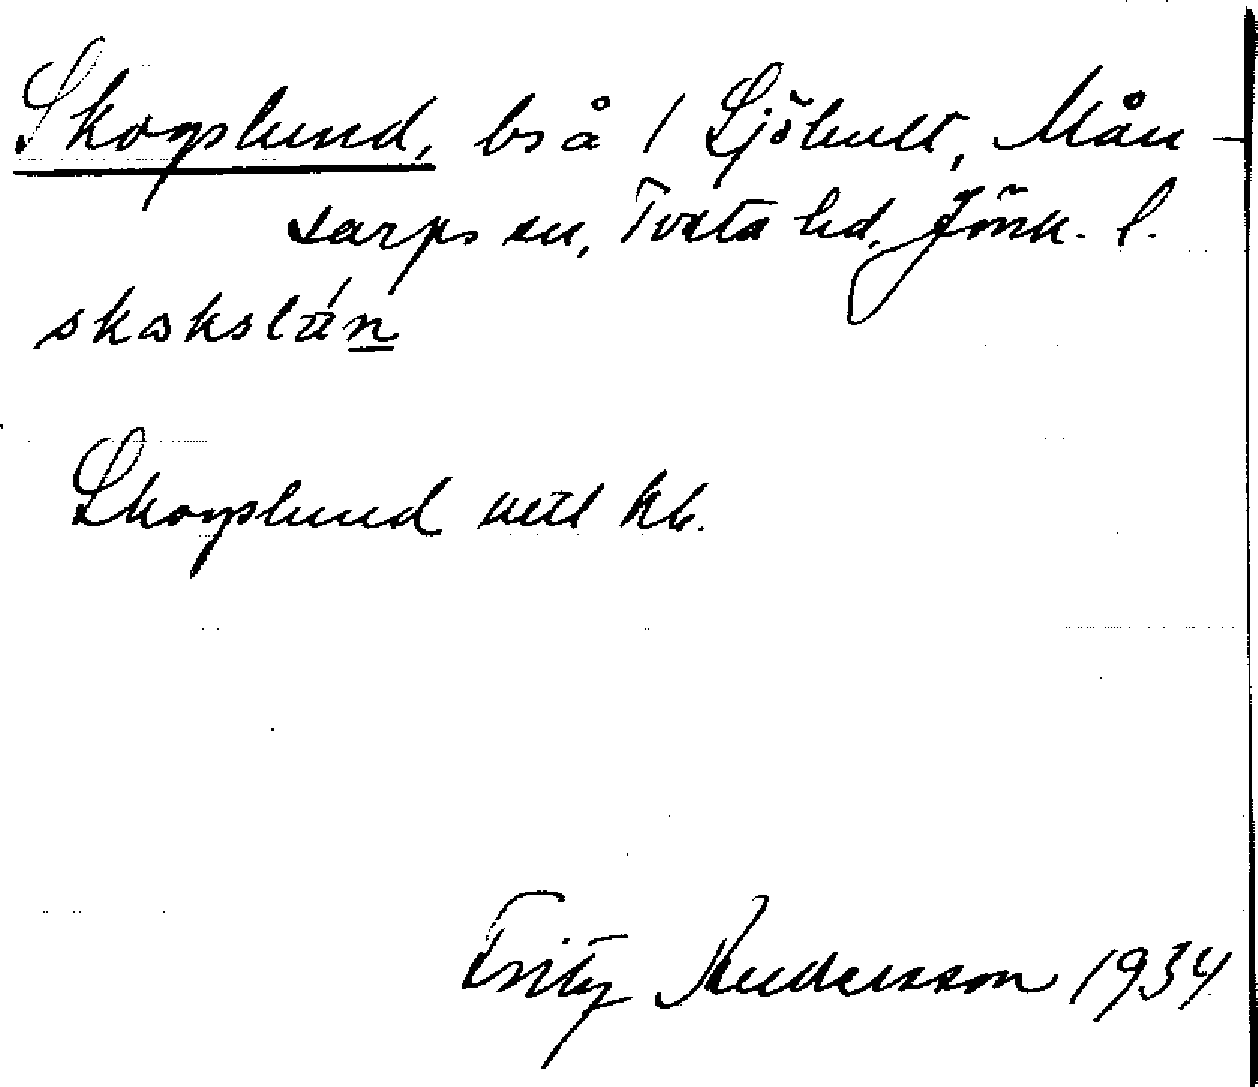 Skogslund, bs å / Sjöhult, Mån-
sarps sn, Tveta hd. Jönk. l.
skokslán
Skogslund utl kb.
Fritz Andersson 1934